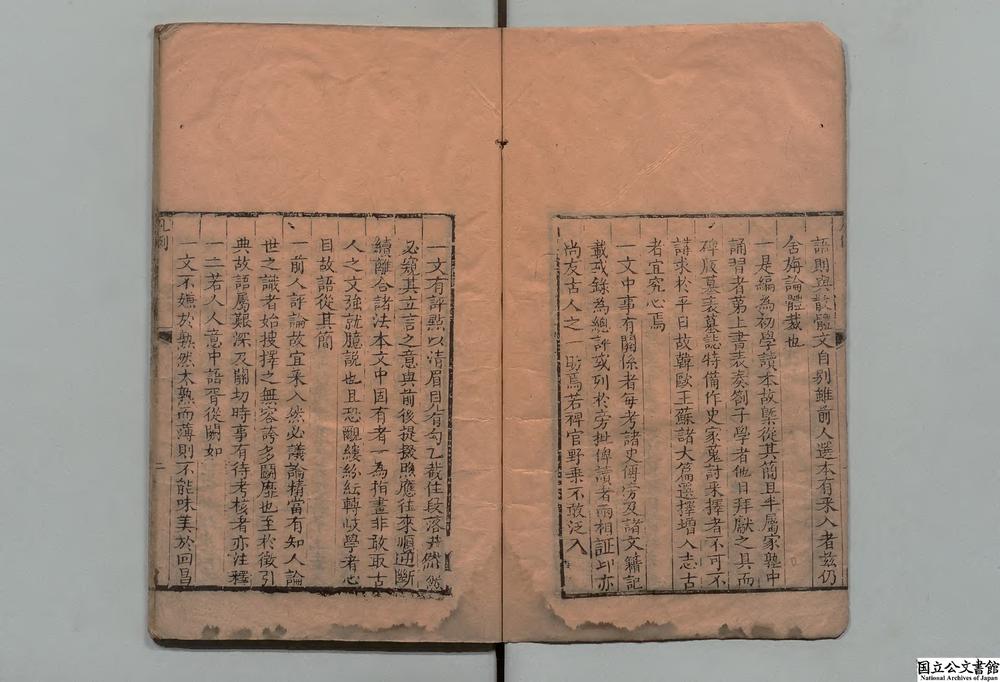 語則與散體文自別雖前人選本有采入者茲仍
舍旃論體裁也
一是編為初學讀本故槩從其簡且半屬家塾中
誦習者第上書表奏劄子學者他日拜獻之具而
碑版墓表墓誌特備作史家蒐討采擇者不可不
講求於平日故韓歐王蘇諸大篇選擇增入志古
者宜究心焉
一文中事有關係者每考諸史傳旁及諸文籍記
載或錄為總評或列於旁批俾讀者兩相証印亦
尚友古人之一助焉若稗官野乗不敢泛入
凡例
一文有評點以清眉目有勾乙截住段落井然然
必窺其立言之意與前後提掇照應往來順逆斷
續離合諸法本文中固有者一為指畫非敢取古
人之文強就臆說也且恐覼縷紛紜轉歧學者心
目故語從其簡
一前人評論故宜采入然必議論精當有知人論
世之識者始搜擇之無容誇多鬭靡也至於徵引
典故語屬艱深及關切時事有待考核者亦注釋
一二若人人意中語胥從闕如
一文不嫌於熟然太熟而薄則不能味美於回昌
二
国立公文書館
National Archives of Japan